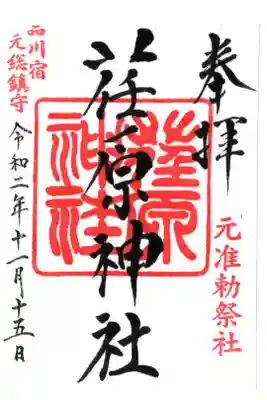 奉拝
元准勅祭社
荏原神社
荏原神社
品川宿
元総鎮守
令和二年十一月十五日